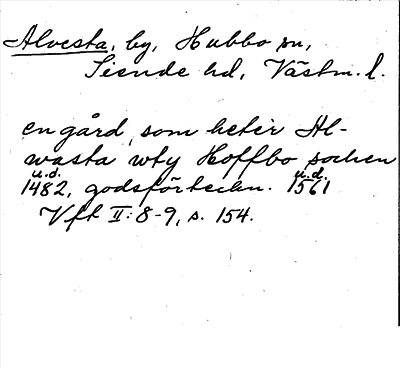 Alvesta, by, Hubbo sn,
Siende hd, Västm. l.
en gård, som heter Al-
wasta wty Hoffbo sochen
u.d. u.d.
1482, godsförteckn. 1561
Vft II: 8-9, s. 154.